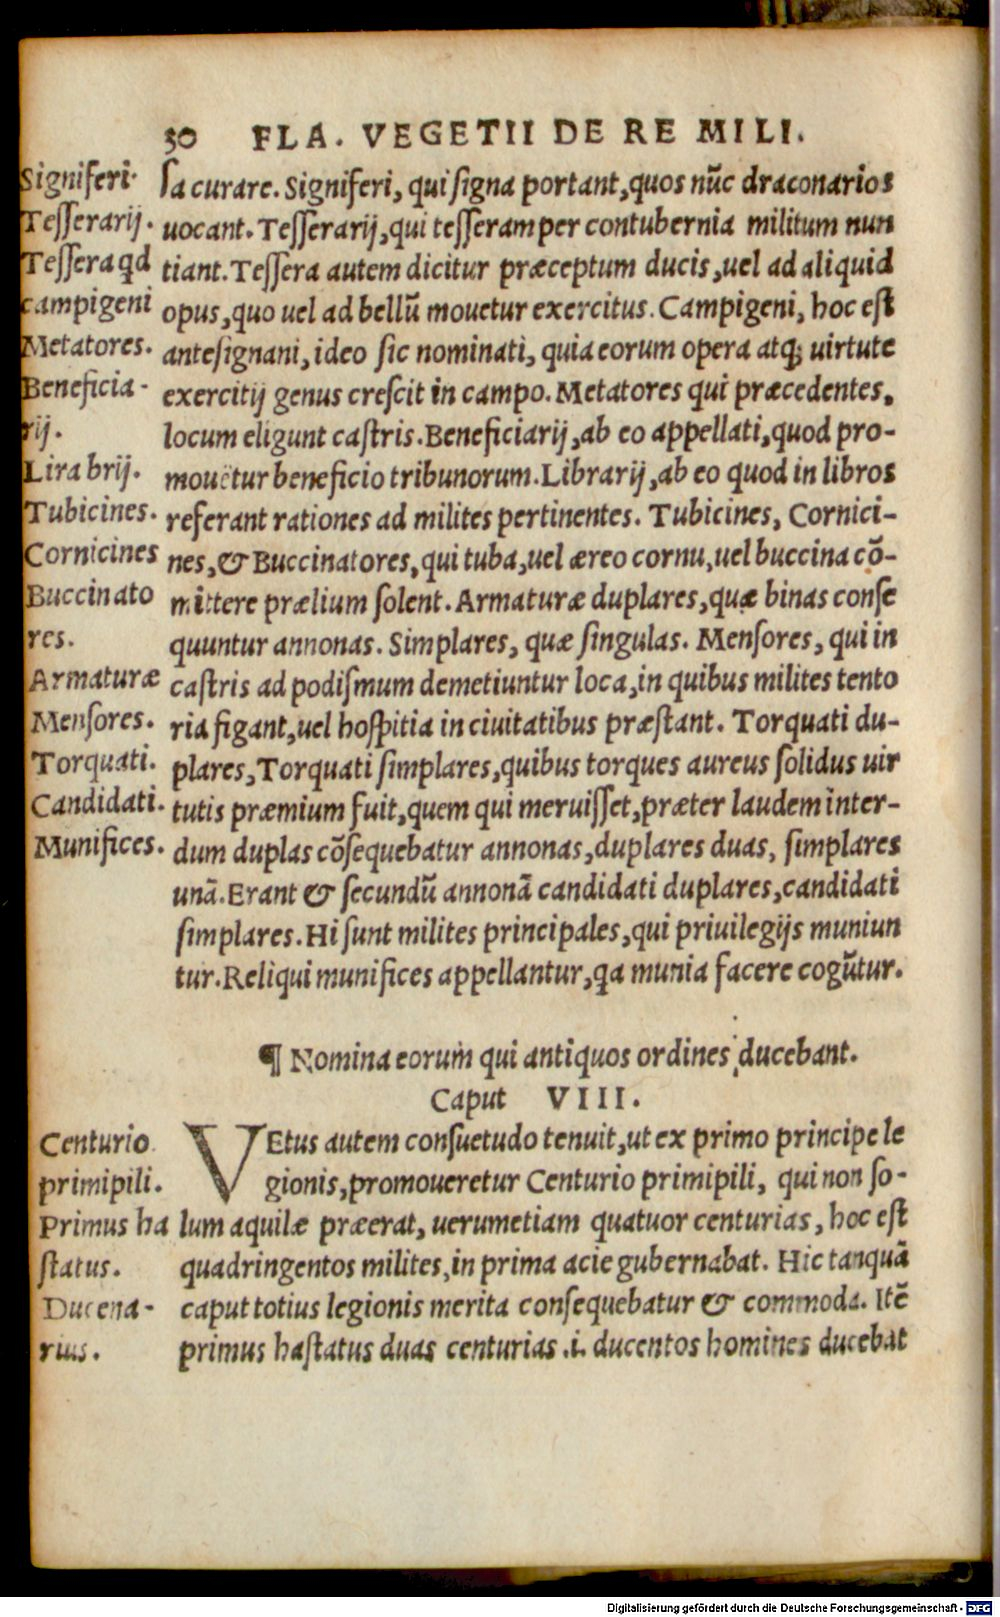 30 FLA. VEGETII DE RE MILI.
Signiferi.
Tesserarij.
Tessera qd
campigeni
Metatores.
Beneficia-
rij.
Lira brij.
Tubicines.
Cornicines
Buccinato
res.
Armaturæ
Mensores.
Torquati.
Candidati.
Munifices.
sa curare. Signiferi, qui signa portant, quos nūc draconarios
uocant. Tesserarij, qui tesseram per contubernia militum nun
tiant. Tessera autem dicitur præceptum ducis, uel ad aliquid
opus, quo uel ad bellū mouetur exercitus. Campigeni, hoc est
antesignani, ideo sic nominati, quia eorum opera atq; uirtute
exercitij genus crescit in campo. Metatores qui præcedentes,
locum eligunt castris. Beneficiarij, ab eo appellati, quod pro-
mouētur beneficio tribunorum. Librarij, ab eo quod in libros
referant rationes ad milites pertinentes. Tubicines, Cornici-
nes, & Buccinatores, qui tuba, uel æreo cornu, uel buccina cō-
mittere prælium solent. Armaturæ duplares, quæ binas conse
quuntur annonas. Simplares, quæ singulas. Mensores, qui in
castris ad podismum demetiuntur loca, in quibus milites tento
ria figant, uel hospitia in ciuitatibus præstant. Torquati du-
plares, Torquati simplares, quibus torques aureus solidus uir
tutis præmium fuit, quem qui meruisset, præter laudem inter-
dum duplas cōsequebatur annonas, duplares duas, simplares
unā. Erant & secundū annonā candidati duplares, candidati
simplares. Hi sunt milites principales, qui priuilegijs muniun
tur. Reliqui munifices appellantur, qa munia facere cogūtur.
¶ Nomina eorum qui antiquos ordines ducebant.
Caput VIII.
Centurio
primipili.
Primus ha
status.
Ducena-
rius.
VEtus autem consuetudo tenuit, ut ex primo principe le
gionis, promoueretur Centurio primipili, qui non so-
lum aquilæ præerat, uerumetiam quatuor centurias, hoc est
quadringentos milites, in prima acie gubernabat. Hic tanquā
caput totius legionis merita consequebatur & commoda. Itē
primus hastatus duas centurias .i. ducentos homines ducebat
Digitalisierung gefördert durch die Deutsche Forschungsgemeinschaft - DFG